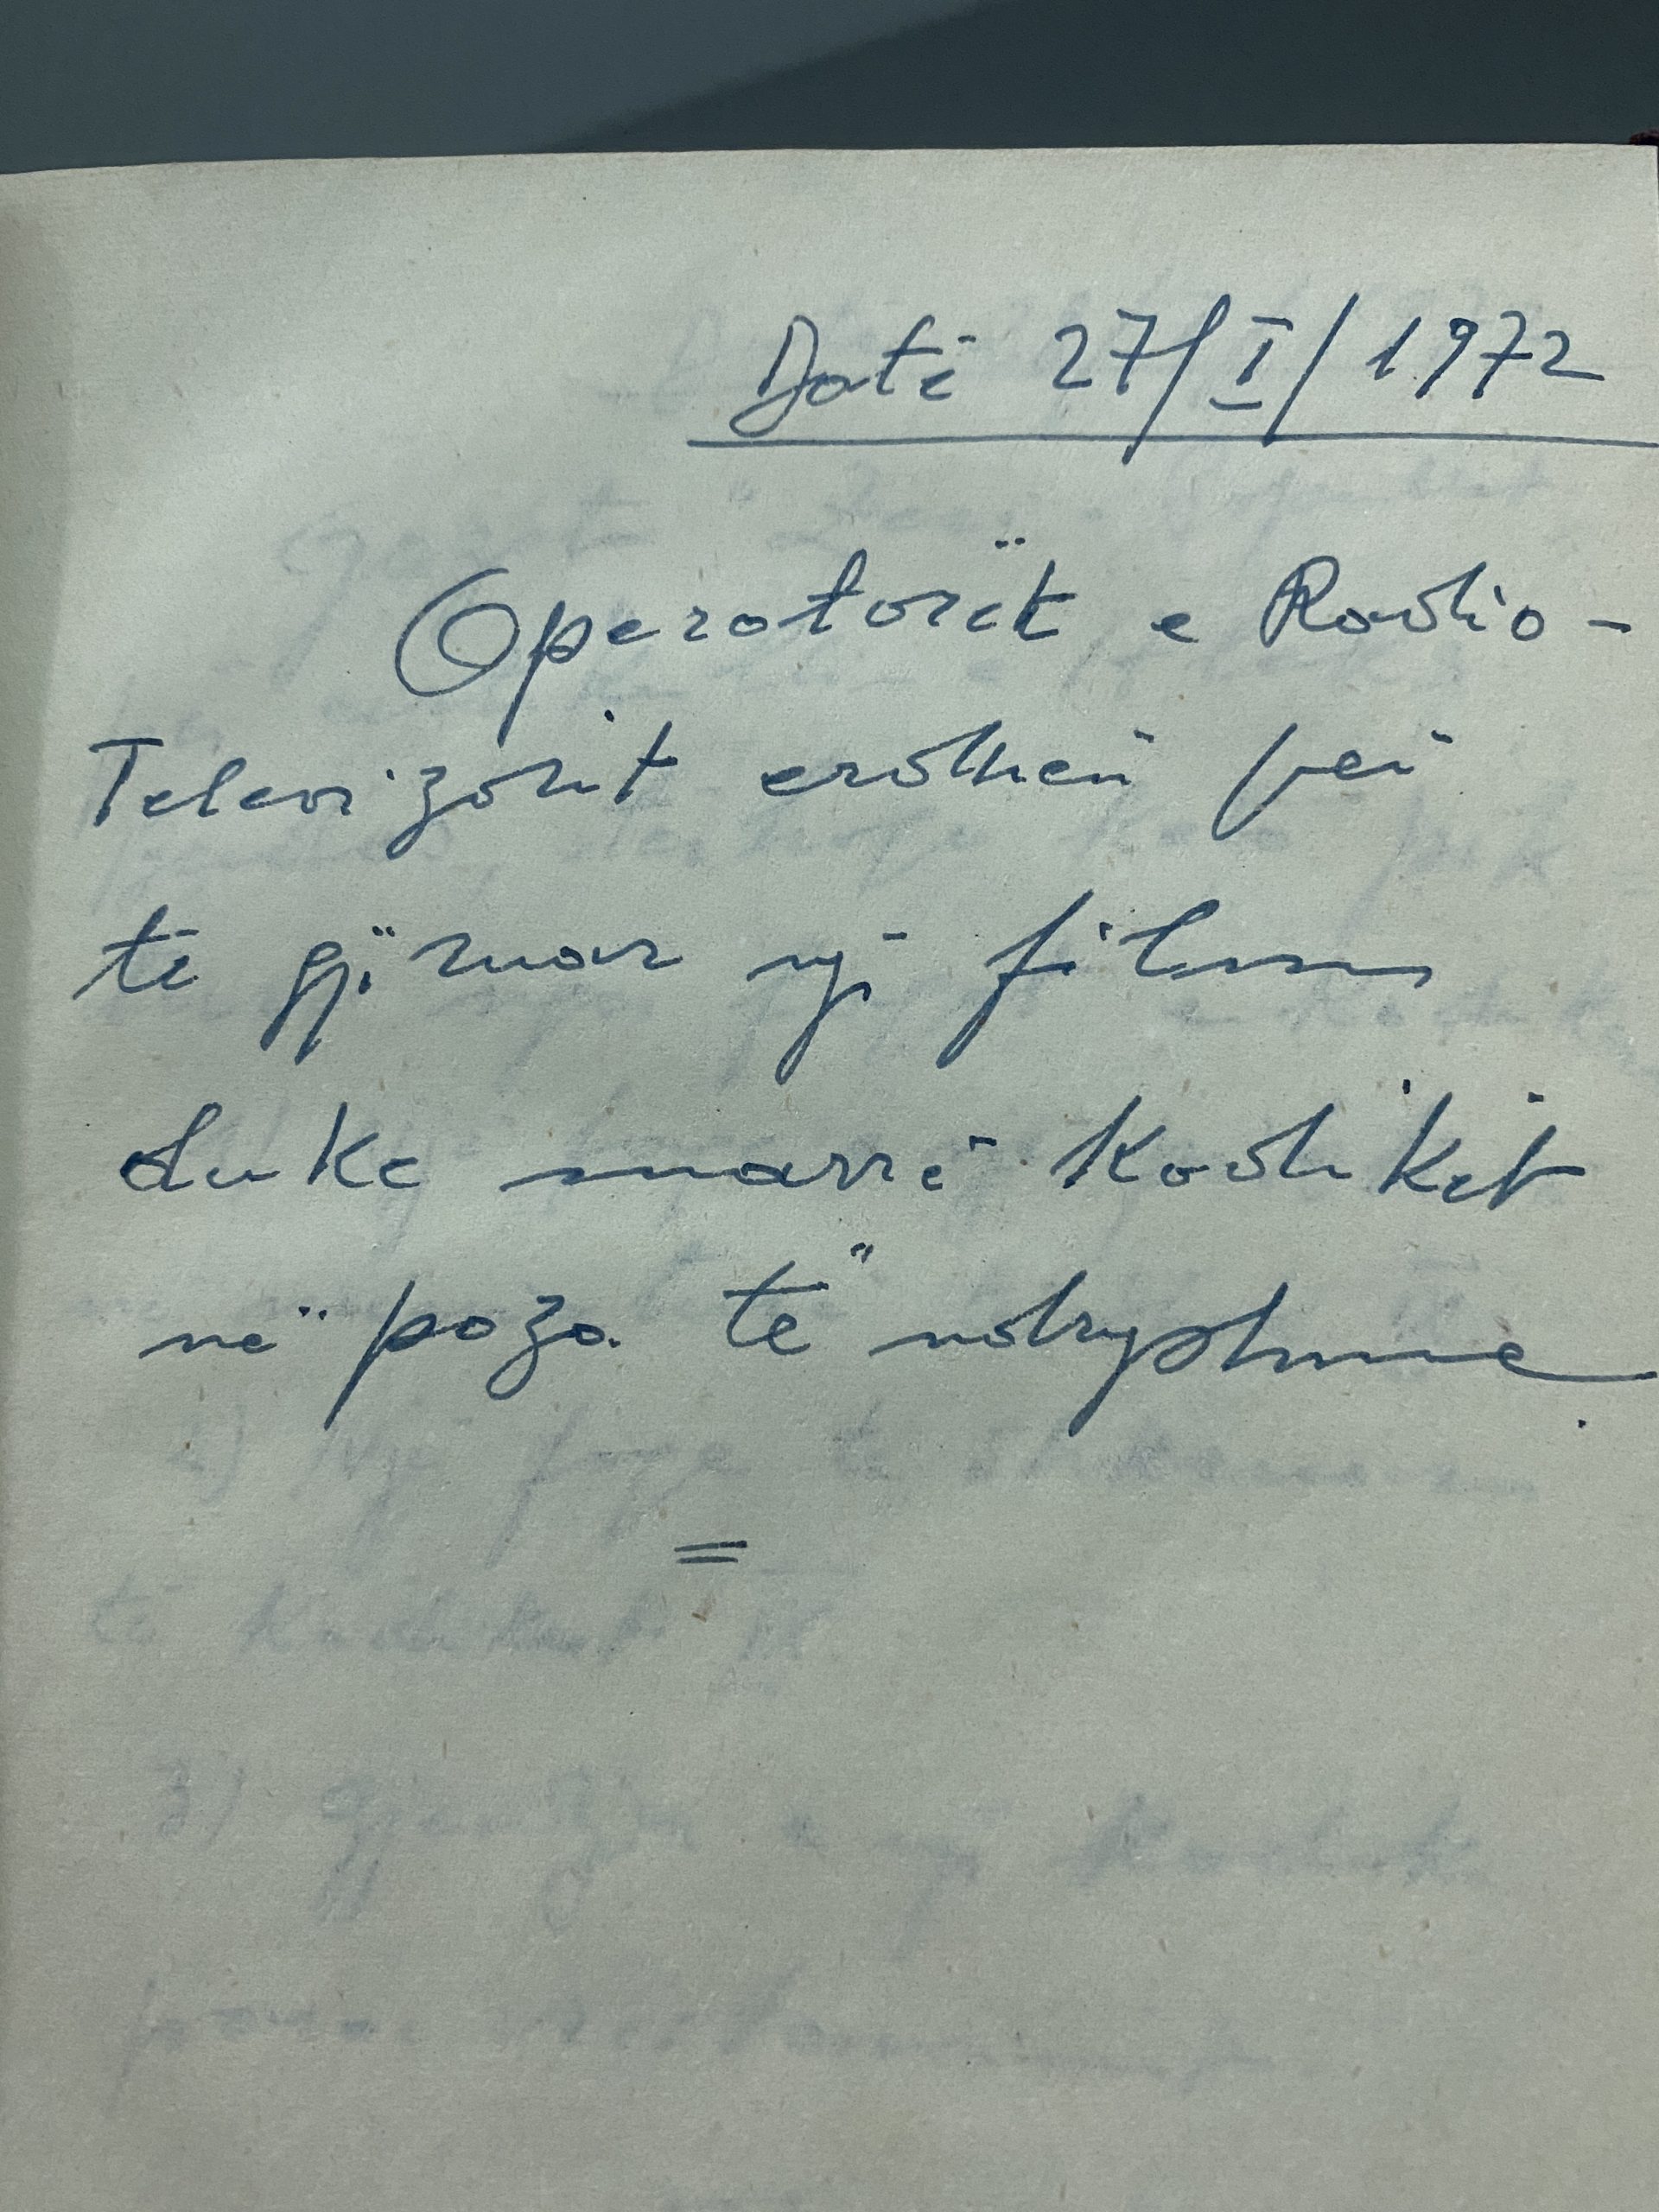 Datë 27/I/1972
Operatorët e Radio-
Televizorit erdhën për
të gjiruar një film
duke marrë Kodikët
në poza të ndryshme.
=